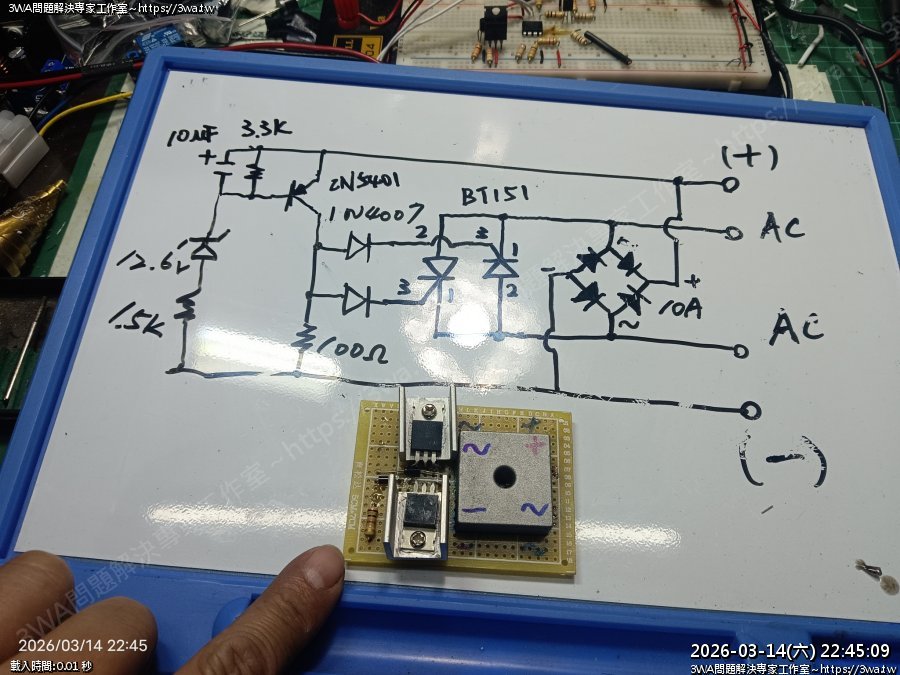 3WA問題解決專家工作室~https://3wa.tw
10μF 3.3K
+
2N5401
1N4007
BT151
(+)
AC
2 3 1
12.6V
3 1 2
- ~ +
~
10A
1.5K
100Ω
AC
(-)
~ +
- ~
2026/03/14 22:45
載入時間:0.01 秒
2026-03-14(六) 22:45:09
3WA問題解決專家工作室~https://3wa.tw